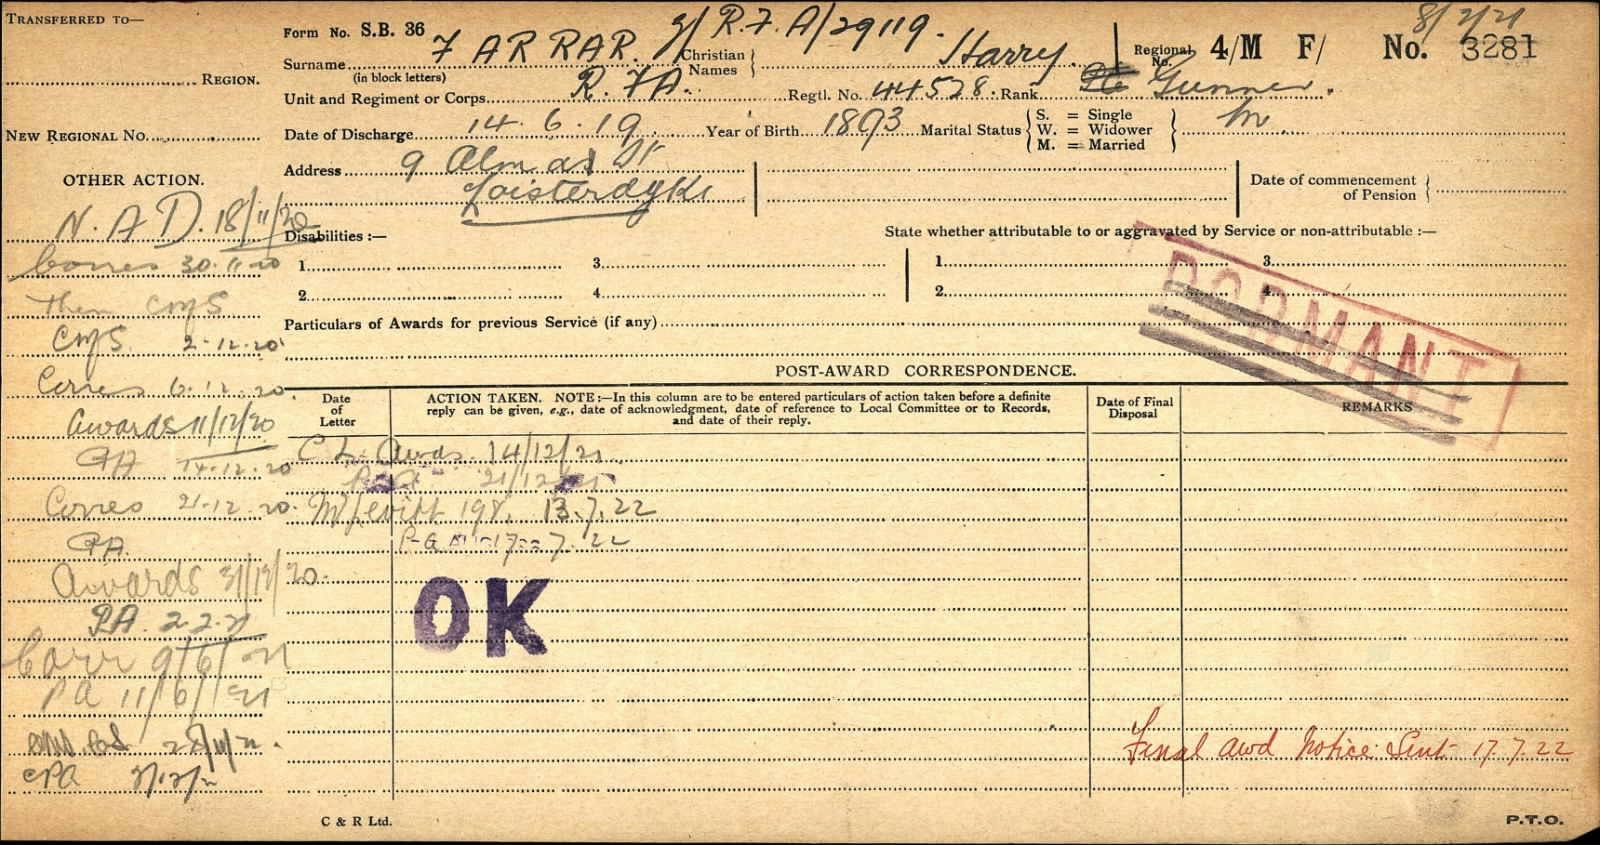 TRANSFERRED TO—
REGION.
NEW REGIONAL No.
OTHER ACTION.
N. A D. 18/11/20
Corres 30.11.20
Then CMS
CMS. 2-12.20
Corres 6.12.20.
Awards 11/12/20
PA 14.12.20
Corres 21.12.20.
PA.
Awards 31/12/20.
PA. 2.2.21
Corr 9/6/21
PA 11/6/21
PA
Form No. S.B. 36
R.F.A/29119.
8/2/21
Surname FARRAR.
(in block letters)
Christian Names Harry.
Regional No. 4/M F/ No. 3281
Unit and Regiment or Corps R.FA.
Regtl. No. 44528. Rank Gunner.
Date of Discharge 14.6.19. Year of Birth 1893 Marital Status
S. = Single
W. = Widower
M. = Married
M.
Address 9 Alma St
Laisterdyke
Date of commencement of Pension
Disabilities :—
State whether attributable to or aggravated by Service or non-attributable :—
1. 3. 1. 3.
2. 4. 2. 4.
DORMANT
Particulars of Awards for previous Service (if any)
POST-AWARD CORRESPONDENCE.
Date of Letter
ACTION TAKEN. NOTE :—In this column are to be entered particulars of action taken before a definite
reply can be given, e.g., date of acknowledgment, date of reference to Local Committee or to Records,
and date of their reply.
Date of Final Disposal
REMARKS
C L. Awds. 14/12/21.
21/12/21
198. 13.7.22
7.22
OK
Final awd Notice Sent 17.7.22
C & R Ltd.
P.T.O.